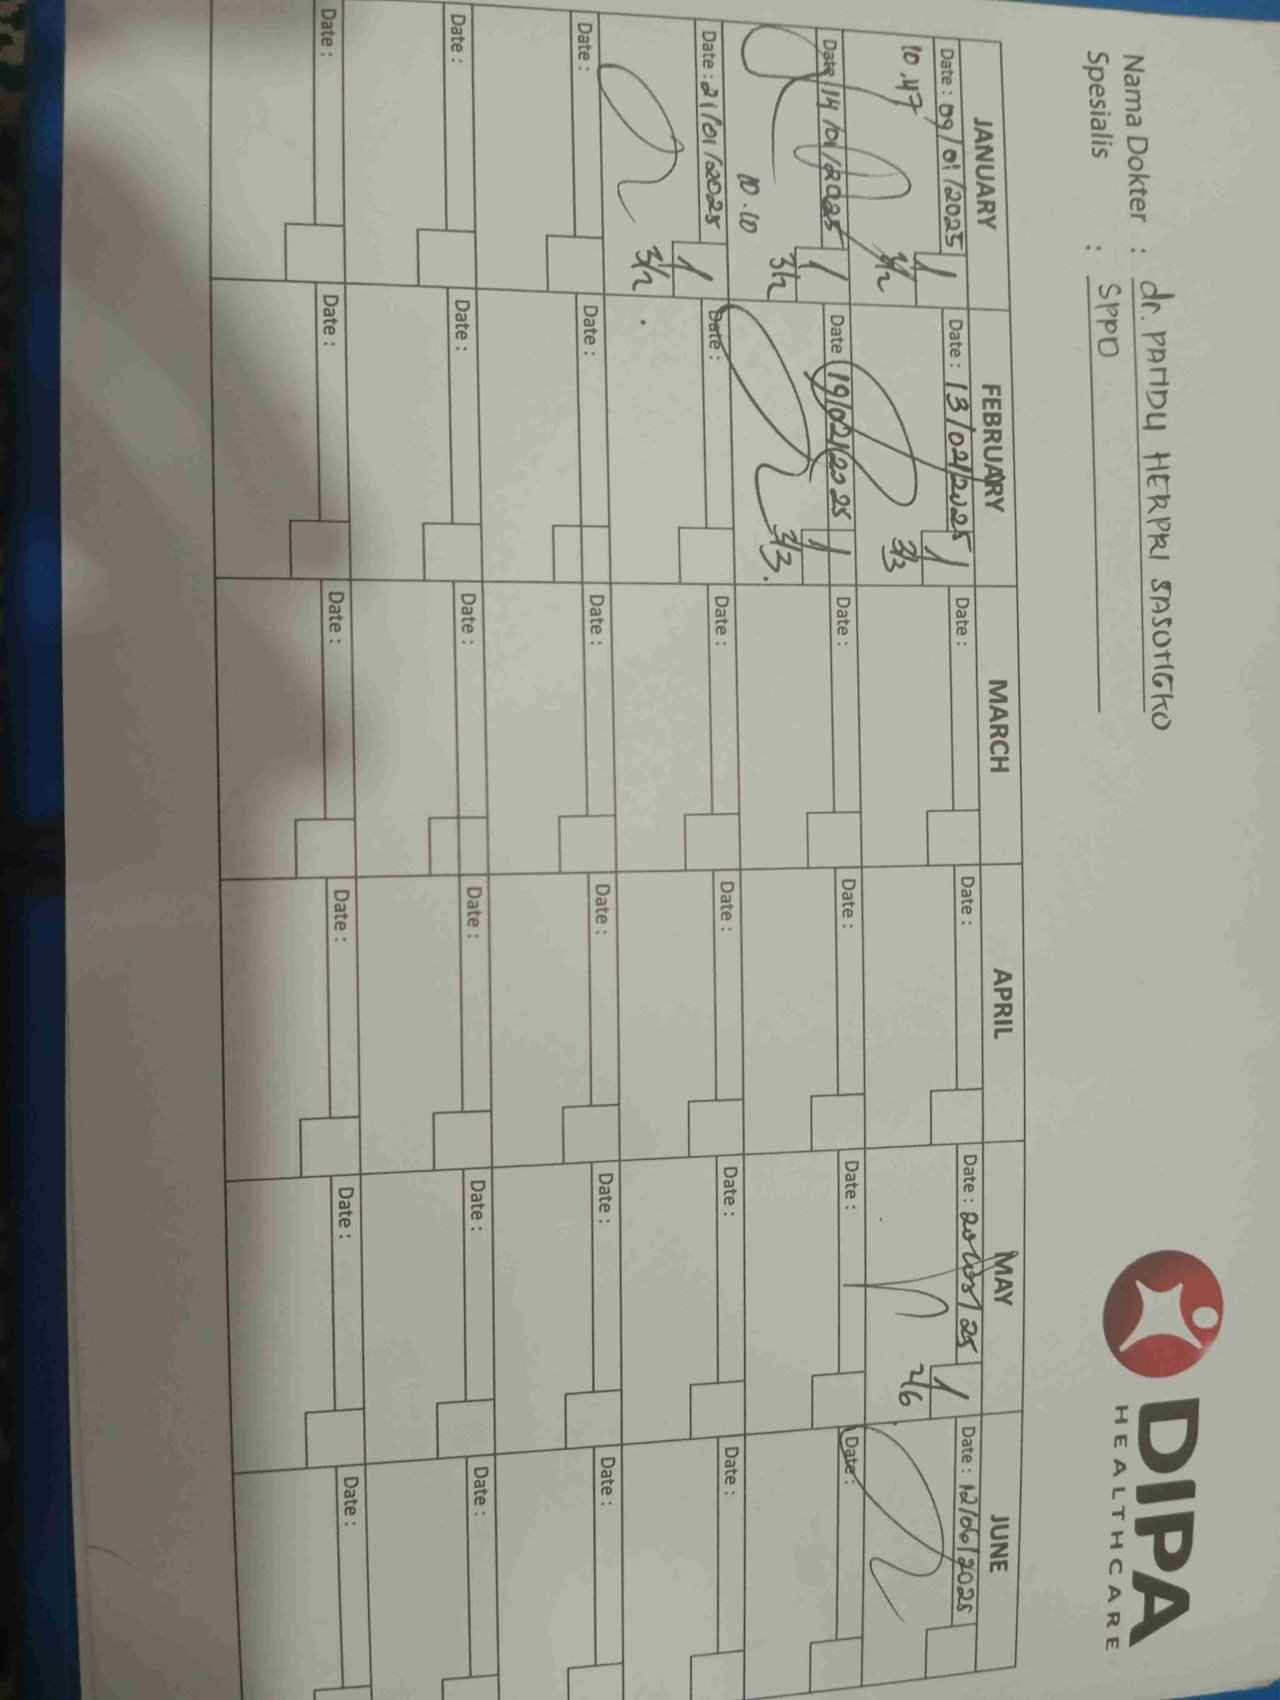 Nama Dokter : dr. PANDU HERPRI SASOTIGKO
Spesialis : SPPD
DIPA
HEALTHCARE
JANUARY FEBRUARY MARCH APRIL MAY JUNE
Date : 09/01/2025 1 Date : 13/02/2025 1 Date : Date : Date : 20/05/25 1 Date : 12/06/2025
10.47 3/2 3/3 2/6
Date : 14/01/2025 1 Date : 19/02/2025 1 Date : Date : Date : Date :
10.10 3/2 3/3.
Date : 21/01/2025 1 Date : Date : Date : Date : Date :
3/2
Date : Date : Date : Date : Date : Date :
Date : Date : Date : Date : Date : Date :
Date : Date : Date : Date : Date : Date :